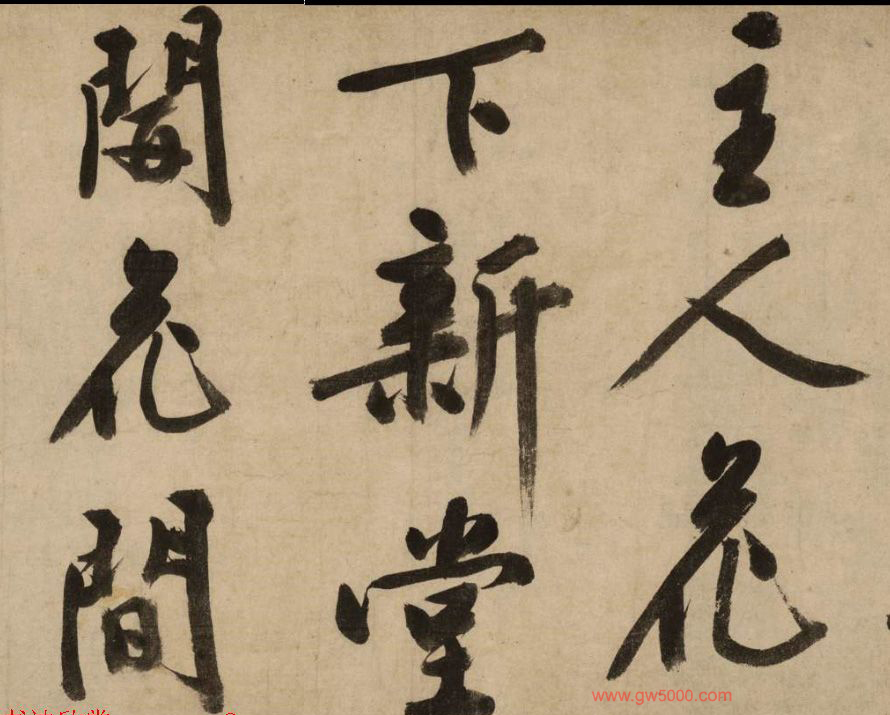 主人花
下新堂
開花間
www.gw5000.com